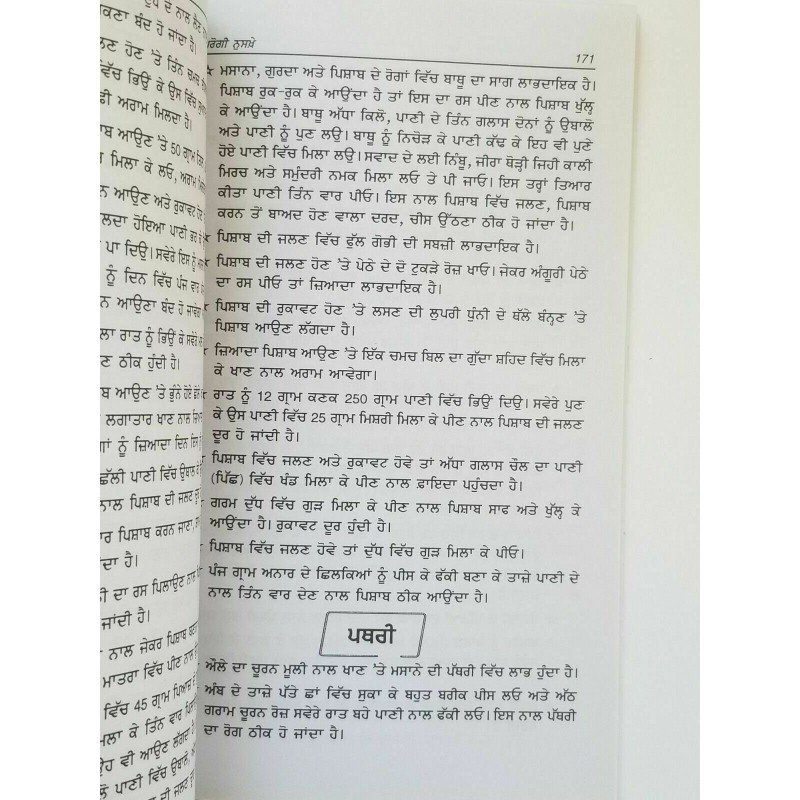 ਕਣਾ ਬੰਦ ਹੋ ਜਾਂਦਾ ਹੈ।
ਲਣ ਹੋਣ 'ਤੇ ਤਿੰਨ ਚਮਚ
ਵਿੱਚ ਭਿਉਂ ਕੇ ਉਸ ਵਿੱਚ
ਫੀ ਅਰਾਮ ਮਿਲਦਾ ਹੈ।
ਬ ਆਉਣ 'ਤੇ 50 ਗ੍ਰਾਮ
ਮਿਲਾ ਕੇ ਲਓ, ਅਰਾਮ
ਨ ਆਉਣ ਅਤੇ ਰੁਕਾਵਟ ਹੋਣ
ਲਦਾ ਹੋਇਆ ਪਾਣੀ ਭਰ ਕੇ
ਪਾ ਦਿਉ। ਸਵੇਰੇ ਇਸ ਨੂੰ
ਨੂੰ ਦਿਨ ਵਿੱਚ ਪੰਜ ਵਾਰ
ਨ ਆਉਣਾ ਬੰਦ ਹੋ ਜਾਵੇਗਾ।
ਲਾ ਰਾਤ ਨੂੰ ਭਿਉਂ ਕੇ ਸਵੇਰੇ
ਣ ਠੀਕ ਹੁੰਦੀ ਹੈ।
ਬ ਆਉਣ 'ਤੇ ਭੁੰਨੇ ਹੋਏ ਛੋਲੇ
ਲਗਾਤਾਰ ਖਾਣ ਨਾਲ
ਗਾਂ ਨੂੰ ਜ਼ਿਆਦਾ ਦਿਨ ਇਸ
ਛੱਲੀ ਪਾਣੀ ਵਿੱਚ ਉਬਾਲ ਕੇ
ਨਾਲ ਪਿਸ਼ਾਬ ਦੀ ਜਲਣ
ਾਰ ਪਿਸ਼ਾਬ ਕਰਨ ਜਾਣਾ,
ਦਾ ਹੈ।
ੀ ਦਾ ਰਸ ਪਿਲਾਉਣ ਨਾਲ
ਜਾਂਦੀ ਹੈ।
ਨਾਲ ਜੇਕਰ ਪਿਸ਼ਾਬ
ਮਾਤਰਾ ਵਿੱਚ ਪੀਣ ਨਾਲ
ਵਿੱਚ 45 ਗ੍ਰਾਮ ਪਿਆਜ਼
ਮਿਲਾ ਕੇ ਤਿੰਨ ਵਾਰ
ਉਹ ਵੀ ਆਉਣ ਲੱਗਦਾ ਹੈ।
ਲੋ ਪਾਣੀ ਵਿੱਚ ਉਬਾਲੋ,
ਰੋਗੀ ਨੁਸਖ਼ੇ 171
ਮਸਾਨਾ, ਗੁਰਦਾ ਅਤੇ ਪਿਸ਼ਾਬ ਦੇ ਰੋਗਾਂ ਵਿੱਚ ਬਾਥੂ ਦਾ ਸਾਗ ਲਾਭਦਾਇਕ ਹੈ।
ਪਿਸ਼ਾਬ ਰੁਕ-ਰੁਕ ਕੇ ਆਉਂਦਾ ਹੈ ਤਾਂ ਇਸ ਦਾ ਰਸ ਪੀਣ ਨਾਲ ਪਿਸ਼ਾਬ ਖੁੱਲ੍ਹ
ਕੇ ਆਉਂਦਾ ਹੈ। ਬਾਥੂ ਅੱਧਾ ਕਿਲੋ, ਪਾਣੀ ਦੇ ਤਿੰਨ ਗਲਾਸ ਦੋਨਾਂ ਨੂੰ ਉਬਾਲੋ
ਅਤੇ ਪਾਣੀ ਨੂੰ ਪੁਣ ਲਉ। ਬਾਥੂ ਨੂੰ ਨਿਚੋੜ ਕੇ ਪਾਣੀ ਕੱਢ ਕੇ ਇਹ ਵੀ ਪੁਣੇ
ਹੋਏ ਪਾਣੀ ਵਿੱਚ ਮਿਲਾ ਲਉ। ਸਵਾਦ ਦੇ ਲਈ ਨਿੰਬੂ, ਜੀਰਾ ਥੋੜ੍ਹੀ ਜਿਹੀ ਕਾਲੀ
ਮਿਰਚ ਅਤੇ ਸਮੁੰਦਰੀ ਨਮਕ ਮਿਲਾ ਲਓ ਤੇ ਪੀ ਜਾਓ। ਇਸ ਤਰ੍ਹਾਂ ਤਿਆਰ
ਕੀਤਾ ਪਾਣੀ ਤਿੰਨ ਵਾਰ ਪੀਓ। ਇਸ ਨਾਲ ਪਿਸ਼ਾਬ ਵਿੱਚ ਜਲਣ, ਪਿਸ਼ਾਬ
ਕਰਨ ਤੋਂ ਬਾਅਦ ਹੋਣ ਵਾਲਾ ਦਰਦ, ਚੀਸ ਉੱਠਣਾ ਠੀਕ ਹੋ ਜਾਂਦਾ ਹੈ।
ਪਿਸ਼ਾਬ ਦੀ ਜਲਣ ਵਿੱਚ ਫੁੱਲ ਗੋਭੀ ਦੀ ਸਬਜ਼ੀ ਲਾਭਦਾਇਕ ਹੈ।
ਪਿਸ਼ਾਬ ਦੀ ਜਲਣ ਹੋਣ 'ਤੇ ਪੇਠੇ ਦੇ ਦੋ ਟੁਕੜੇ ਰੋਜ਼ ਖਾਓ। ਜੇਕਰ ਅੰਗੂਰੀ ਪੇਠੇ
ਦਾ ਰਸ ਪੀਓ ਤਾਂ ਜ਼ਿਆਦਾ ਲਾਭਦਾਇਕ ਹੈ।
ਪਿਸ਼ਾਬ ਦੀ ਰੁਕਾਵਟ ਹੋਣ 'ਤੇ ਲਸਣ ਦੀ ਲੁਪਰੀ ਧੁੰਨੀ ਦੇ ਥੱਲੇ ਬੰਨ੍ਹਣ 'ਤੇ
ਪਿਸ਼ਾਬ ਆਉਣ ਲੱਗਦਾ ਹੈ।
ਜ਼ਿਆਦਾ ਪਿਸ਼ਾਬ ਆਉਣ 'ਤੇ ਇੱਕ ਚਮਚ ਬਿਲ ਦਾ ਗੁੱਦਾ ਸ਼ਹਿਦ ਵਿੱਚ ਮਿਲਾ
ਕੇ ਖਾਣ ਨਾਲ ਅਰਾਮ ਆਵੇਗਾ।
ਰਾਤ ਨੂੰ 12 ਗ੍ਰਾਮ ਕਣਕ 250 ਗ੍ਰਾਮ ਪਾਣੀ ਵਿੱਚ ਭਿਉਂ ਦਿਉ। ਸਵੇਰੇ ਪੁਣ
ਕੇ ਉਸ ਪਾਣੀ ਵਿੱਚ 25 ਗ੍ਰਾਮ ਮਿਸ਼ਰੀ ਮਿਲਾ ਕੇ ਪੀਣ ਨਾਲ ਪਿਸ਼ਾਬ ਦੀ ਜਲਣ
ਦੂਰ ਹੋ ਜਾਂਦੀ ਹੈ।
ਪਿਸ਼ਾਬ ਵਿੱਚ ਜਲਣ ਅਤੇ ਰੁਕਾਵਟ ਹੋਵੇ ਤਾਂ ਅੱਧਾ ਗਲਾਸ ਚੌਲ ਦਾ ਪਾਣੀ
(ਪਿੱਛ) ਵਿੱਚ ਖੰਡ ਮਿਲਾ ਕੇ ਪੀਣ ਨਾਲ ਫ਼ਾਇਦਾ ਪਹੁੰਚਦਾ ਹੈ।
ਗਰਮ ਦੁੱਧ ਵਿੱਚ ਗੁੜ ਮਿਲਾ ਕੇ ਪੀਣ ਨਾਲ ਪਿਸ਼ਾਬ ਸਾਫ ਅਤੇ ਖੁੱਲ੍ਹ ਕੇ
ਆਉਂਦਾ ਹੈ। ਰੁਕਾਵਟ ਦੂਰ ਹੁੰਦੀ ਹੈ।
ਪਿਸ਼ਾਬ ਵਿੱਚ ਜਲਣ ਹੋਵੇ ਤਾਂ ਦੁੱਧ ਵਿੱਚ ਗੁੜ ਮਿਲਾ ਕੇ ਪੀਓ।
ਪੰਜ ਗ੍ਰਾਮ ਅਨਾਰ ਦੇ ਛਿਲਕਿਆਂ ਨੂੰ ਪੀਸ ਕੇ ਫੱਕੀ ਬਣਾ ਕੇ ਤਾਜ਼ੇ ਪਾਣੀ ਦੇ
ਨਾਲ ਤਿੰਨ ਵਾਰ ਦੇਣ ਨਾਲ ਪਿਸ਼ਾਬ ਠੀਕ ਆਉਂਦਾ ਹੈ।
ਪਥਰੀ
ਔਲੇ ਦਾ ਚੂਰਨ ਮੂਲੀ ਨਾਲ ਖਾਣ 'ਤੇ ਮਸਾਨੇ ਦੀ ਪੱਥਰੀ ਵਿੱਚ ਲਾਭ ਹੁੰਦਾ ਹੈ।
ਅੰਬ ਦੇ ਤਾਜ਼ੇ ਪੱਤੇ ਛਾਂ ਵਿੱਚ ਸੁਕਾ ਕੇ ਬਹੁਤ ਬਰੀਕ ਪੀਸ ਲਓ ਅਤੇ ਅੱਠ
ਗਰਾਮ ਚੂਰਨ ਰੋਜ਼ ਸਵੇਰੇ ਰਾਤ ਬਹੇ ਪਾਣੀ ਨਾਲ ਫੱਕੀ ਲਓ। ਇਸ ਨਾਲ ਪੱਥਰੀ
ਦਾ ਰੋਗ ਠੀਕ ਹੋ ਜਾਂਦਾ ਹੈ।